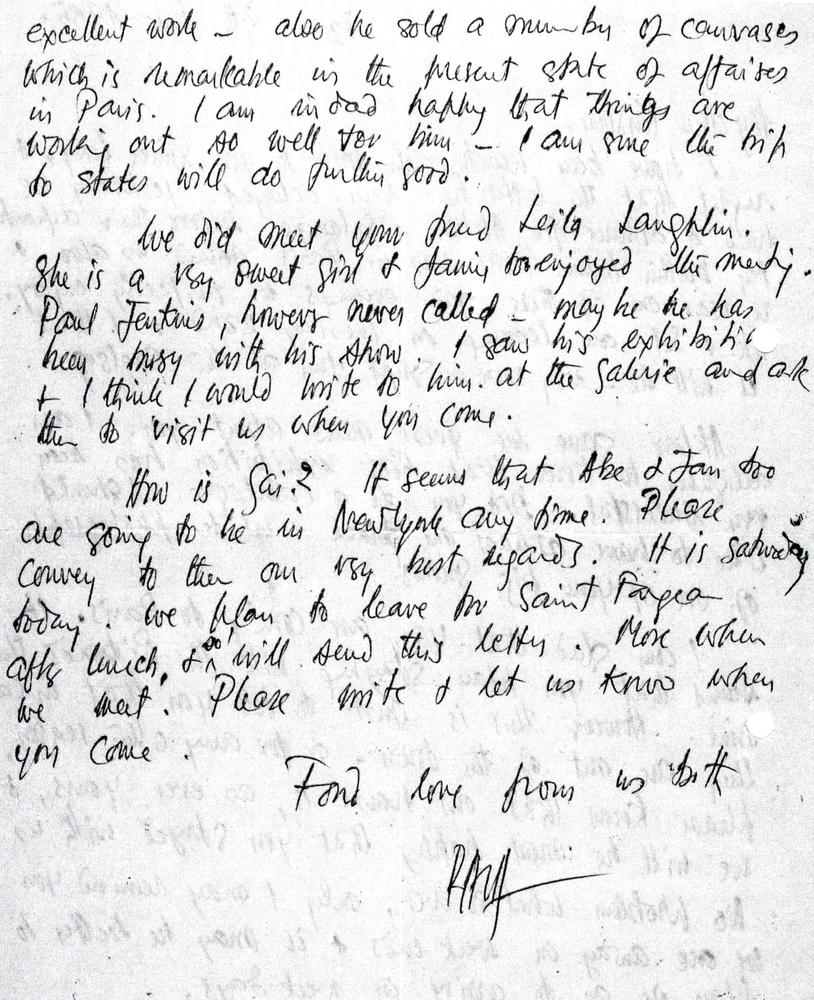 excellent work – also he sold a number of canvases
which is remarkable in the present state of affaires
in Paris. I am indeed happy that things are
working out so well for him – I am sure the trip
to States will do further good.
We did meet your friend Leila Laughlin.
She is a very sweet girl & Janine too enjoyed the meeting.
Paul Jenkins, however never called – maybe he has
been busy with his show. I saw his exhibition
& I think I would write to him. at the Galerie and ask
them to visit us when you come.
How is Gai? It seems that Abe & Jan too
are going to be in New York any time. Please
Convey to them our very best regards. It is saturday
today. We plan to leave for Saint Fargeau
after lunch, & will send this letter. More when
we meet. Please write & let us know when
you come.
Fond love from us both